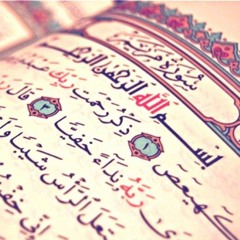 سُورَةُ مَرْيَمَ
بِسْمِ اللَّهِ الرَّحْمَٰنِ الرَّحِيمِ
كٓهيعٓصٓ ١ ذِكْرُ رَحْمَتِ رَبِّكَ
رَبَّهُۥ نِدَآءً خَفِيًّا ٣ قَالَ
ٱلرَّأْسُ شَيْبًا